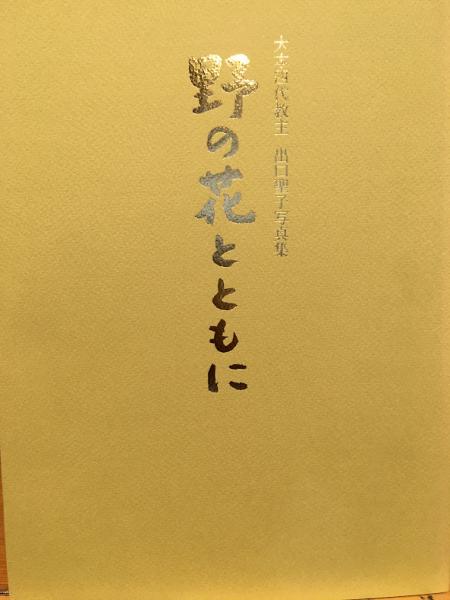 大本四代教主 出口聖子写真集
野の花とともに